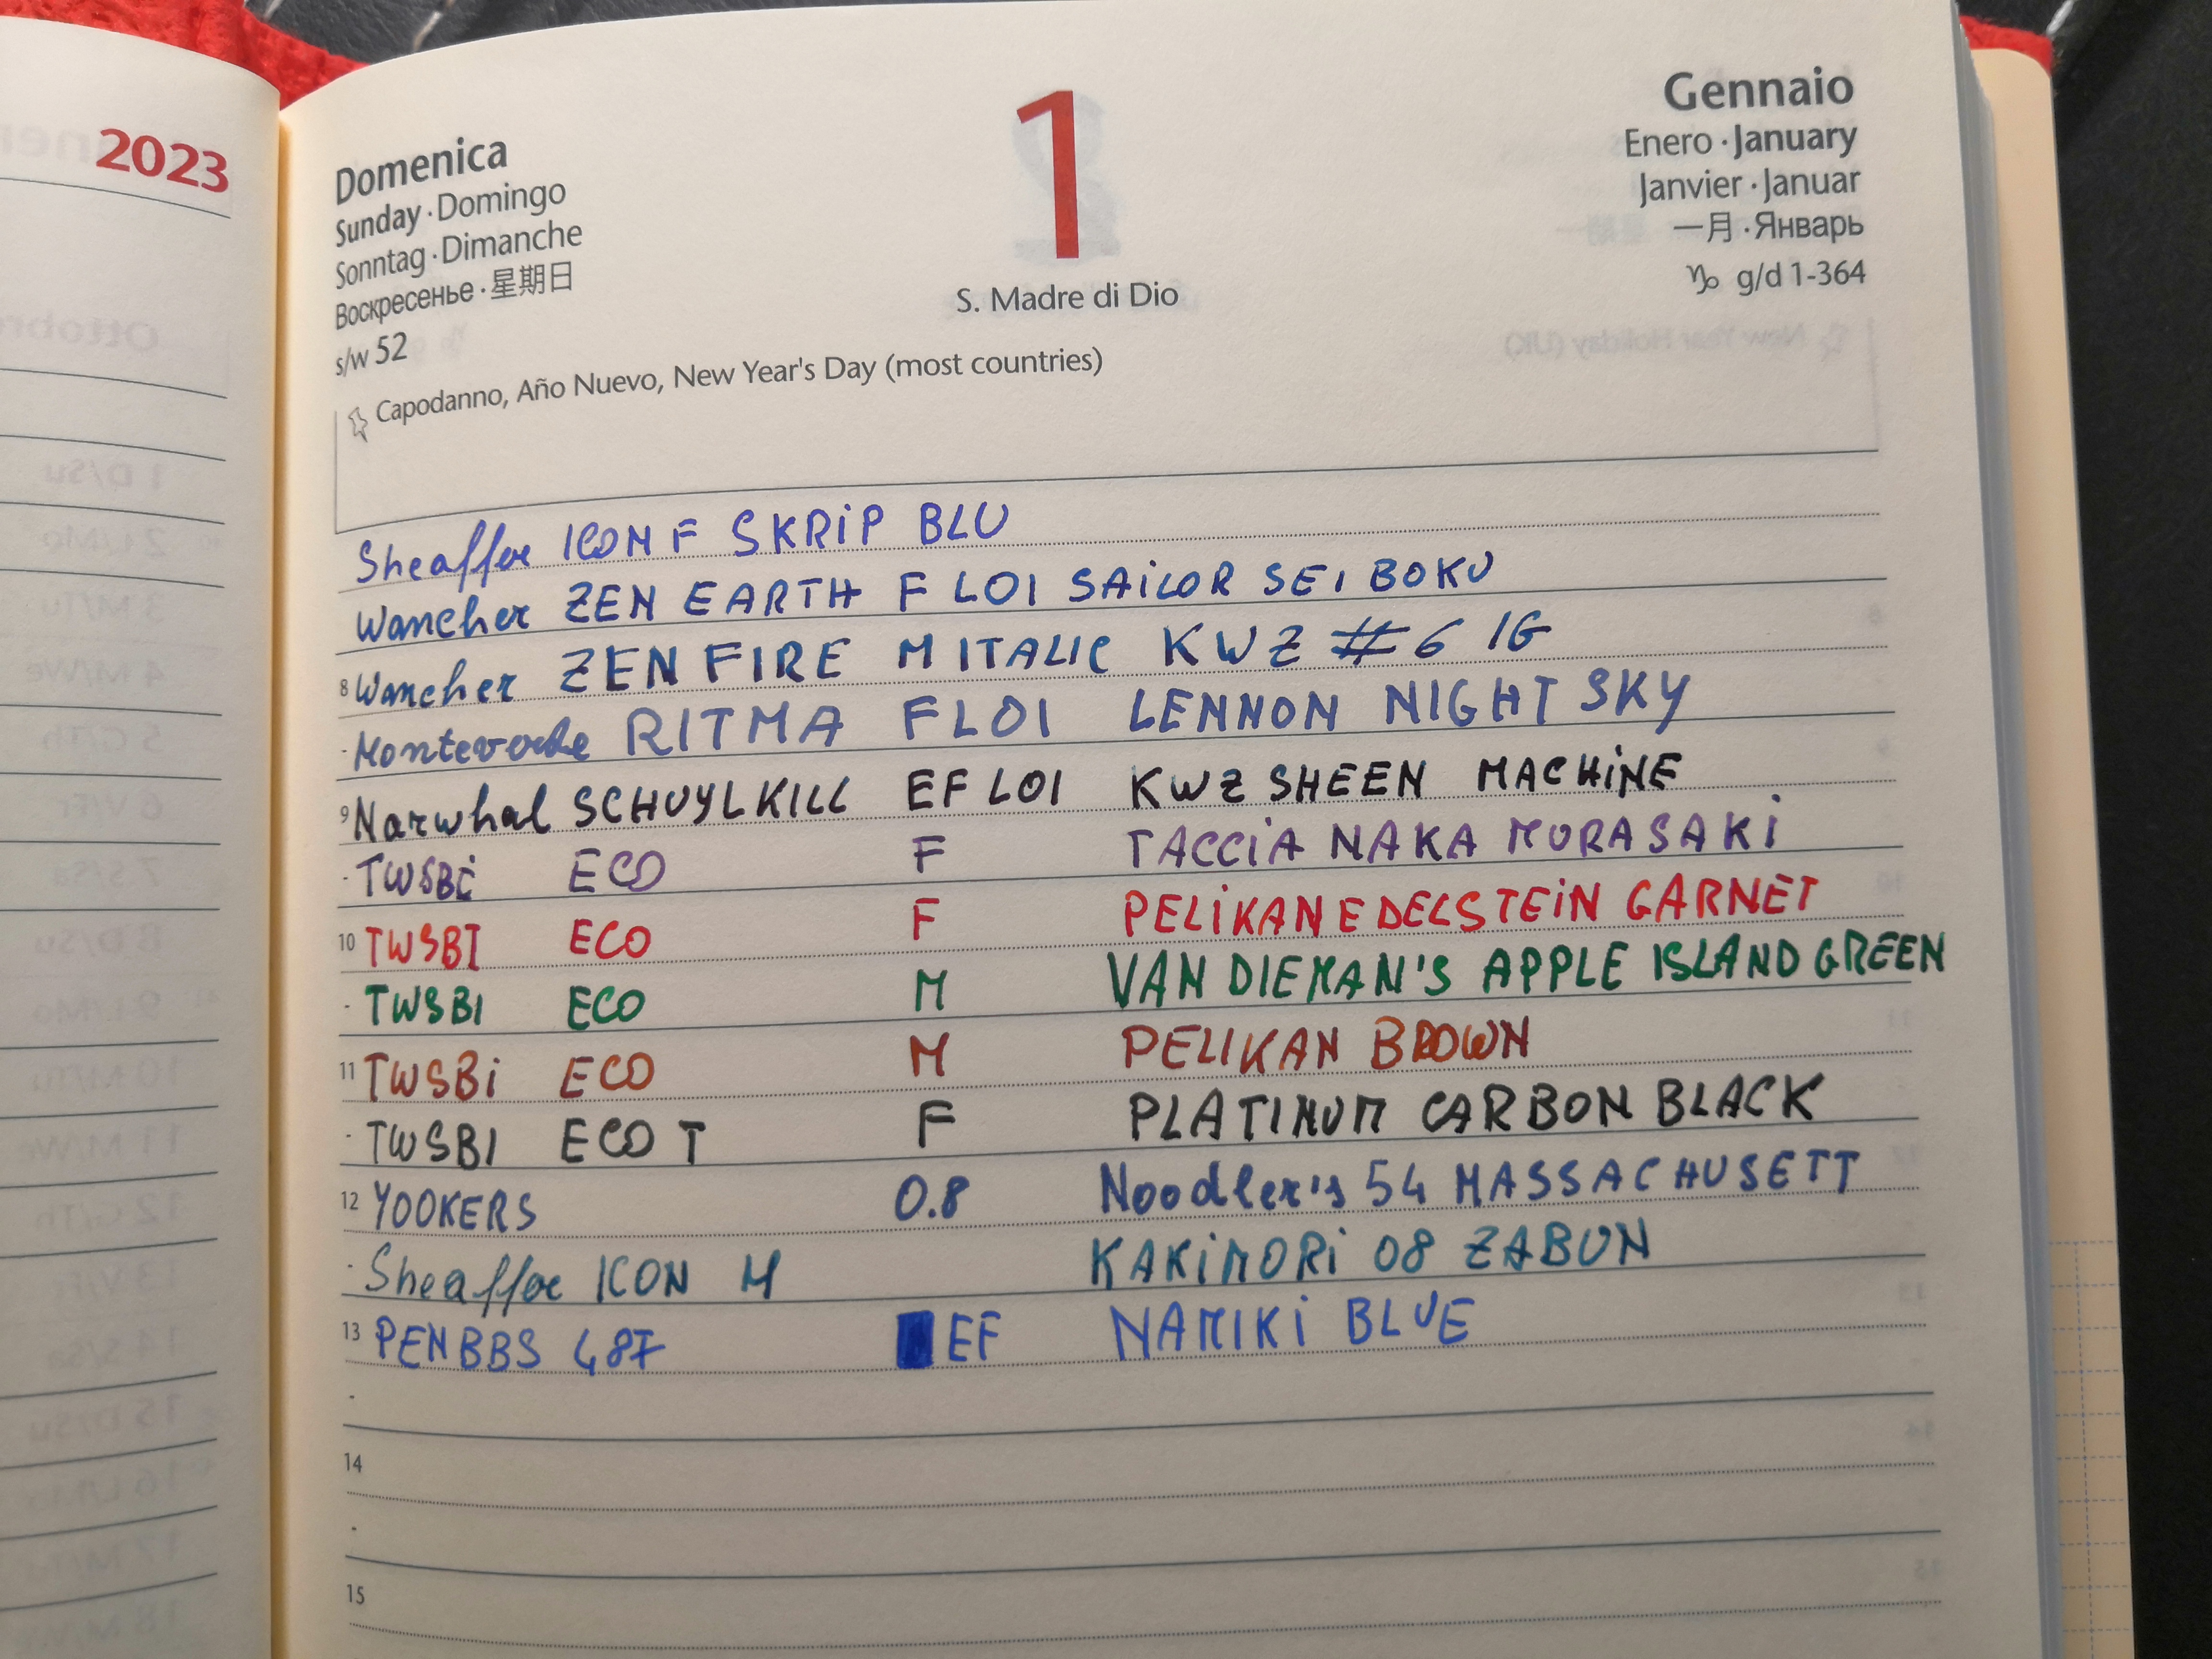 2023
Domenica
Sunday · Domingo
Sonntag · Dimanche
Воскресенье · 星期日
s/w 52
1
S. Madre di Dio
Gennaio
Enero · January
Janvier · Januar
一月 · Январь
♑ g/d 1-364
Capodanno, Año Nuevo, New Year's Day (most countries)
Sheaffer ICON F SKRiP BLU
Wancher ZEN EARTH F LOI SAiLOR SEI BOKU
8 Wancher ZEN FIRE M ITALIC KWZ #6 IG
Monteverde RITMA F LOI LENNON NIGHT SKY
9 Narwhal SCHUYLKILL EF LOI KWZ SHEEN MACHiNE
TWSBi ECO F TACCiA NAKA MURASAKi
10 TWSBI ECO F PELiKAN EDELSTEiN GARNET
TWSBI ECO M VAN DIEMAN'S APPLE ISLAND GREEN
11 TWSBi ECO M PELIKAN BROWN
TWSBI ECO T F PLATINUM CARBON BLACK
12 YOOKERS 0.8 Noodler's 54 MASSACHUSETT
Sheaffer ICON M KAKiMORi 08 ZABUN
13 PENBBS 487 EF NAMIKi BLUE
14
15